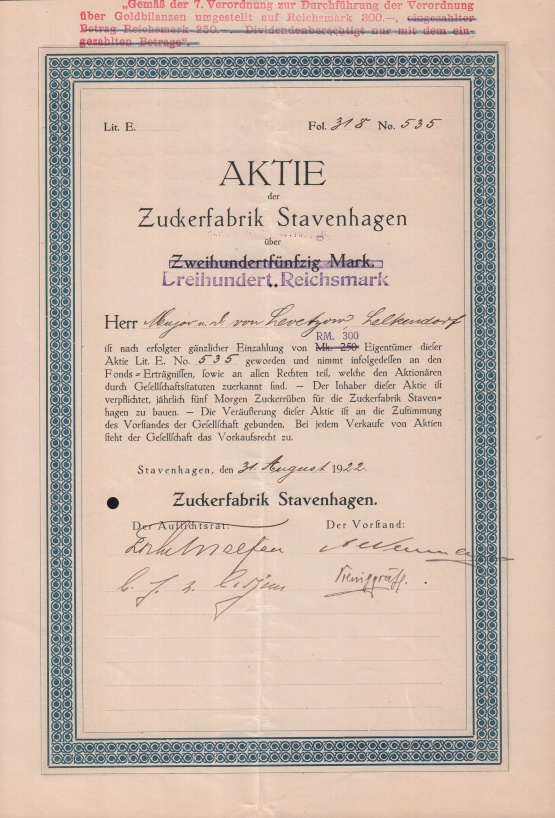 „Gemäß der 7. Verordnung zur Durchführung der Verordnung
über Goldbilanzen umgestellt auf Reichsmark 300.—, eingezahlter
Betrag Reichsmark 250.—. Dividendenberechtigt nur mit dem ein-
gezahlten Betrage".
Lit. E.
Fol. 318 No. 535
AKTIE
der
Zuckerfabrik Stavenhagen
über
Zweihundertfünfzig Mark.
Dreihundert Reichsmark
Herr Major a.d. von Levetzow, Lelkendorf
RM. 300
ist nach erfolgter gänzlicher Einzahlung von Mk. 250 Eigentümer dieser
Aktie Lit. E. No. 535 geworden und nimmt infolgedessen an den
Fonds-Erträgnissen, sowie an allen Rechten teil, welche den Aktionären
durch Gesellschaftsstatuten zuerkannt sind. — Der Inhaber dieser Aktie ist
verpflichtet, jährlich fünf Morgen Zuckerrüben für die Zuckerfabrik Staven-
hagen zu bauen. — Die Veräußerung dieser Aktie ist an die Zustimmung
des Vorstandes der Gesellschaft gebunden. Bei jedem Verkaufe von Aktien
steht der Gesellschaft das Vorkaufsrecht zu.
Stavenhagen, den 31. August 1922.
Zuckerfabrik Stavenhagen.
Der Aufsichtsrat:
Der Vorstand: